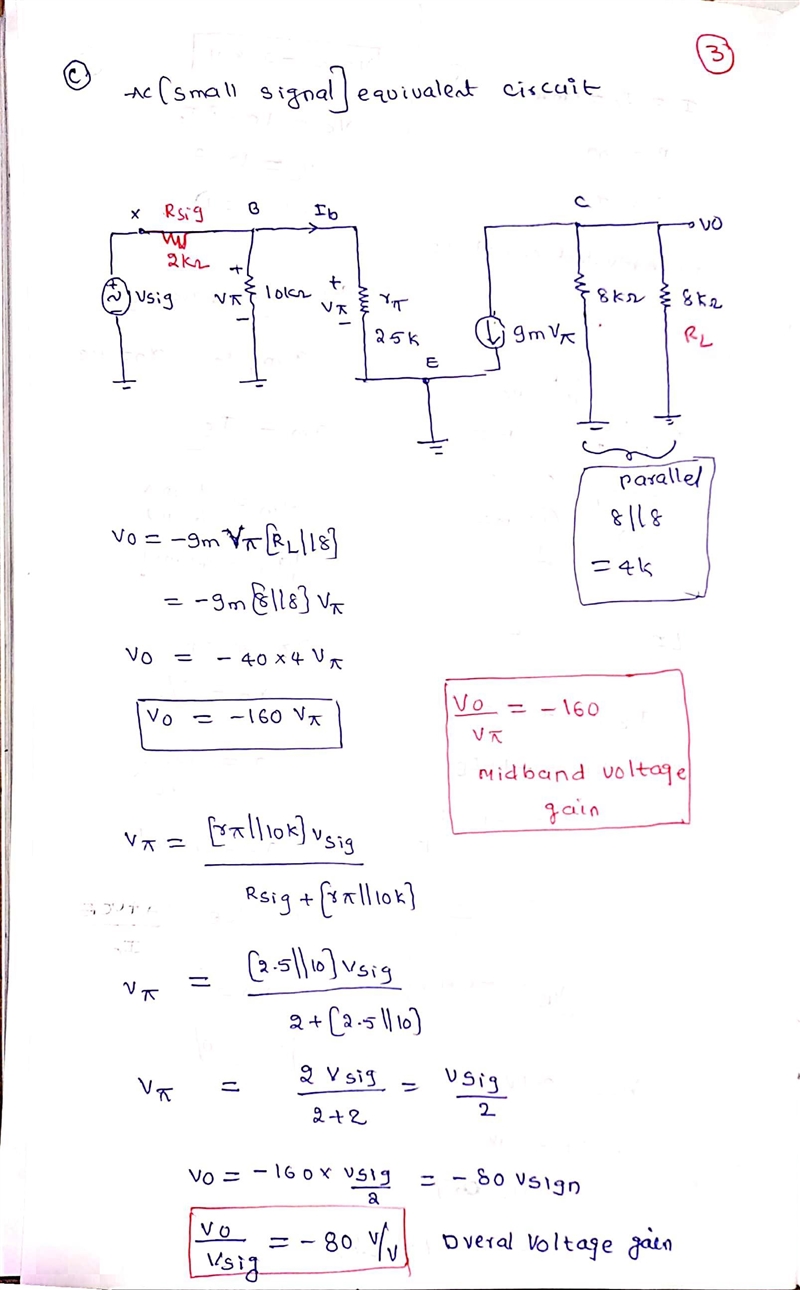 3
c
Ac (small signal] equivalent circuit
X Rsig B Ib C
VO
2kΩ
Vsig
+ Vπ - 10kΩ
+ Vπ - rπ
25K
gmVπ
8kΩ
8kΩ
RL
E
parallel
8||8
= 4k
VO = -gm Vπ [RL||8]
= -gm [8||8] Vπ
VO = - 40 x 4 Vπ
VO = -160 Vπ
VO / Vπ = -160
Midband voltage
gain
Vπ = [rπ||10k] Vsig
Rsig + [rπ||10k]
Vπ = [2.5||10] Vsig
2 + [2.5||10]
Vπ = 2 Vsig = Vsig
2+2 2
VO = -160 x Vsig = - 80 Vsign
2
VO / Vsig = - 80 V/V Overal Voltage gain